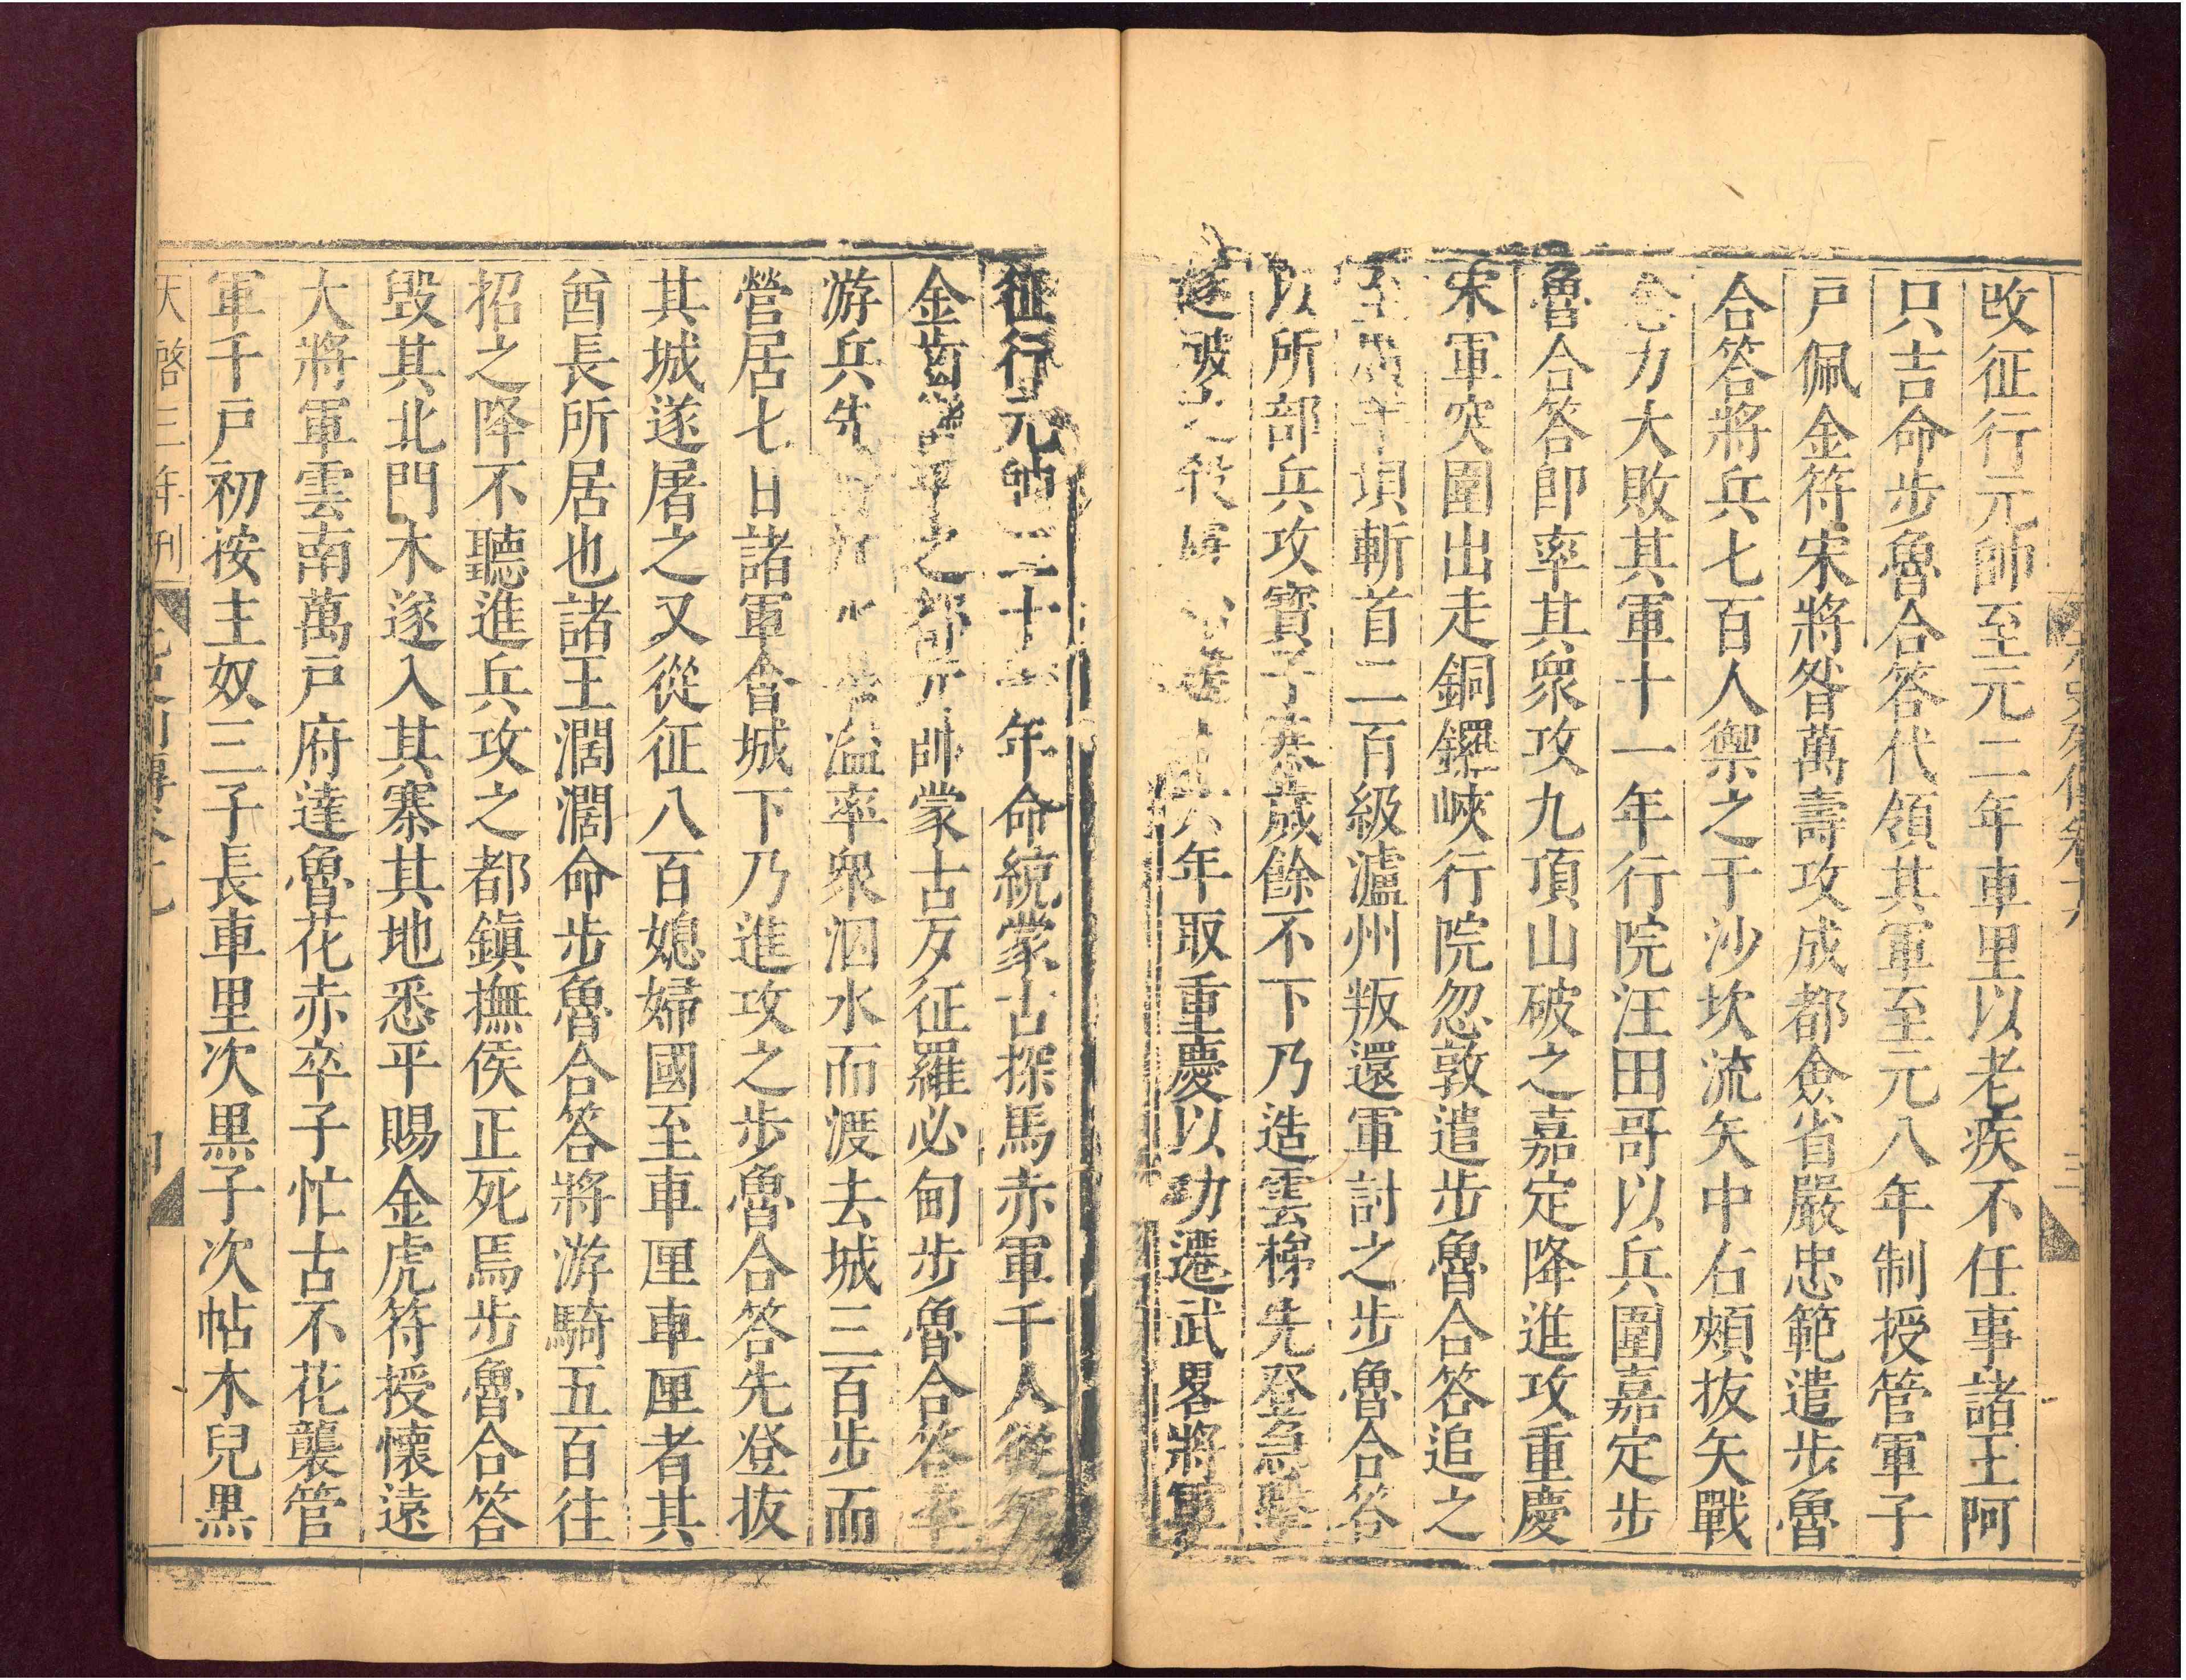 改征行元帥至元二年車里以老疾不任事諸王阿
只吉命步魯合答代領其軍至元八年制授管軍千
戸佩金符宋將昝萬壽攻成都僉省嚴忠範遣步魯
合答將兵七百人禦之于沙坎流矢中右頰拔矢戰
力大敗其軍十一年行院汪田哥以兵圍嘉定步
魯合答卽率其衆攻九頂山破之嘉定降進攻重慶
宋軍突圍出走銅鑼峽行院忽敦遣步魯合答追之
至 垻斬首二百級瀘州叛還軍討之步魯合答
以所部兵攻寶子寨歲餘不下乃造雲梯先登急擊
遂破之殺 六年取重慶以功遷武畧將軍
征行元帥二十 年命統蒙古探馬赤軍千人從征
金齒 平之都元帥蒙古歹征羅必甸步魯合答率
游兵先 水 溢率衆泅水而渡去城三百步而
營居七日諸軍會城下乃進攻之步魯合答先登拔
其城遂屠之又從征八百媳婦國至車厘車厘者其
酋長所居也諸王濶濶命步魯合答將游騎五百往
招之降不聽進兵攻之都鎭撫侯正死焉步魯合答
毀其北門木遂入其寨其地悉平賜金虎符授懷遠
大將軍雲南萬戸府達魯花赤卒子忙古不花襲管
軍千戸初按主奴三子長車里次黒子次帖木兒黒
天啓三年刊 元史列傳卷十九 四